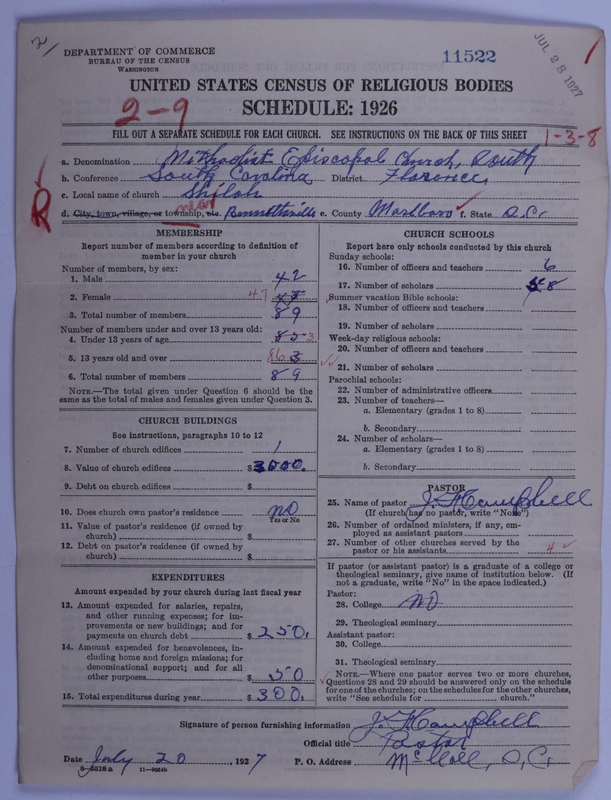 2
DEPARTMENT OF COMMERCE
BUREAU OF THE CENSUS
WASHINGTON
11522
JUL 28 1927
1
UNITED STATES CENSUS OF RELIGIOUS BODIES
2-9
SCHEDULE: 1926
FILL OUT A SEPARATE SCHEDULE FOR EACH CHURCH. SEE INSTRUCTIONS ON THE BACK OF THIS SHEET
1-3-8
a. Denomination Methodist Episcopal Church, South
b. Conference South Carolina District Florence
c. Local name of church Shiloh
R
near
d. City, town, village, or township, etc. Bennettsville e. County Marlboro f. State S.C.
MEMBERSHIP
Report number of members according to definition of
member in your church
Number of members, by sex:
1. Male 42
2. Female 47
3. Total number of members 89
Number of members under and over 13 years old:
4. Under 13 years of age 3
5. 13 years old and over 86
6. Total number of members 89
NOTE.—The total given under Question 6 should be the
same as the total of males and females given under Question 3.
CHURCH BUILDINGS
See instructions, paragraphs 10 to 12
7. Number of church edifices 1
8. Value of church edifices $3000.
9. Debt on church edifices $
10. Does church own pastor's residence no
Yes or No
11. Value of pastor's residence (if owned by
church) $
12. Debt on pastor's residence (if owned by
church) $
EXPENDITURES
Amount expended by your church during last fiscal year
13. Amount expended for salaries, repairs,
and other running expenses; for im-
provements or new buildings; and for
payments on church debt $250.
14. Amount expended for benevolences, in-
cluding home and foreign missions; for
denominational support; and for all
other purposes $50
15. Total expenditures during year $300.
CHURCH SCHOOLS
Report here only schools conducted by this church
Sunday schools:
16. Number of officers and teachers 6
17. Number of scholars 8
Summer vacation Bible schools:
18. Number of officers and teachers
19. Number of scholars
Week-day religious schools:
20. Number of officers and teachers
21. Number of scholars
Parochial schools:
22. Number of administrative officers
23. Number of teachers—
a. Elementary (grades 1 to 8)
b. Secondary
24. Number of scholars—
a. Elementary (grades 1 to 8)
b. Secondary
PASTOR
25. Name of pastor Campbell
(If church has no pastor, write "None")
26. Number of ordained ministers, if any, em-
ployed as assistant pastors
27. Number of other churches served by the
pastor or his assistants 4
If pastor (or assistant pastor) is a graduate of a college or
theological seminary, give name of institution below. (If
not a graduate, write "No" in the space indicated.)
Pastor:
28. College no
29. Theological seminary
Assistant pastor:
30. College
31. Theological seminary
NOTE.—Where one pastor serves two or more churches,
Questions 28 and 29 should be answered only on the schedule
for one of the churches; on the schedules for the other churches,
write "See schedule for ........ church."
Signature of person furnishing information Campbell
Official title Pastor
Date July 20, 1927 P. O. Address McColl, S.C.
8-5318 a